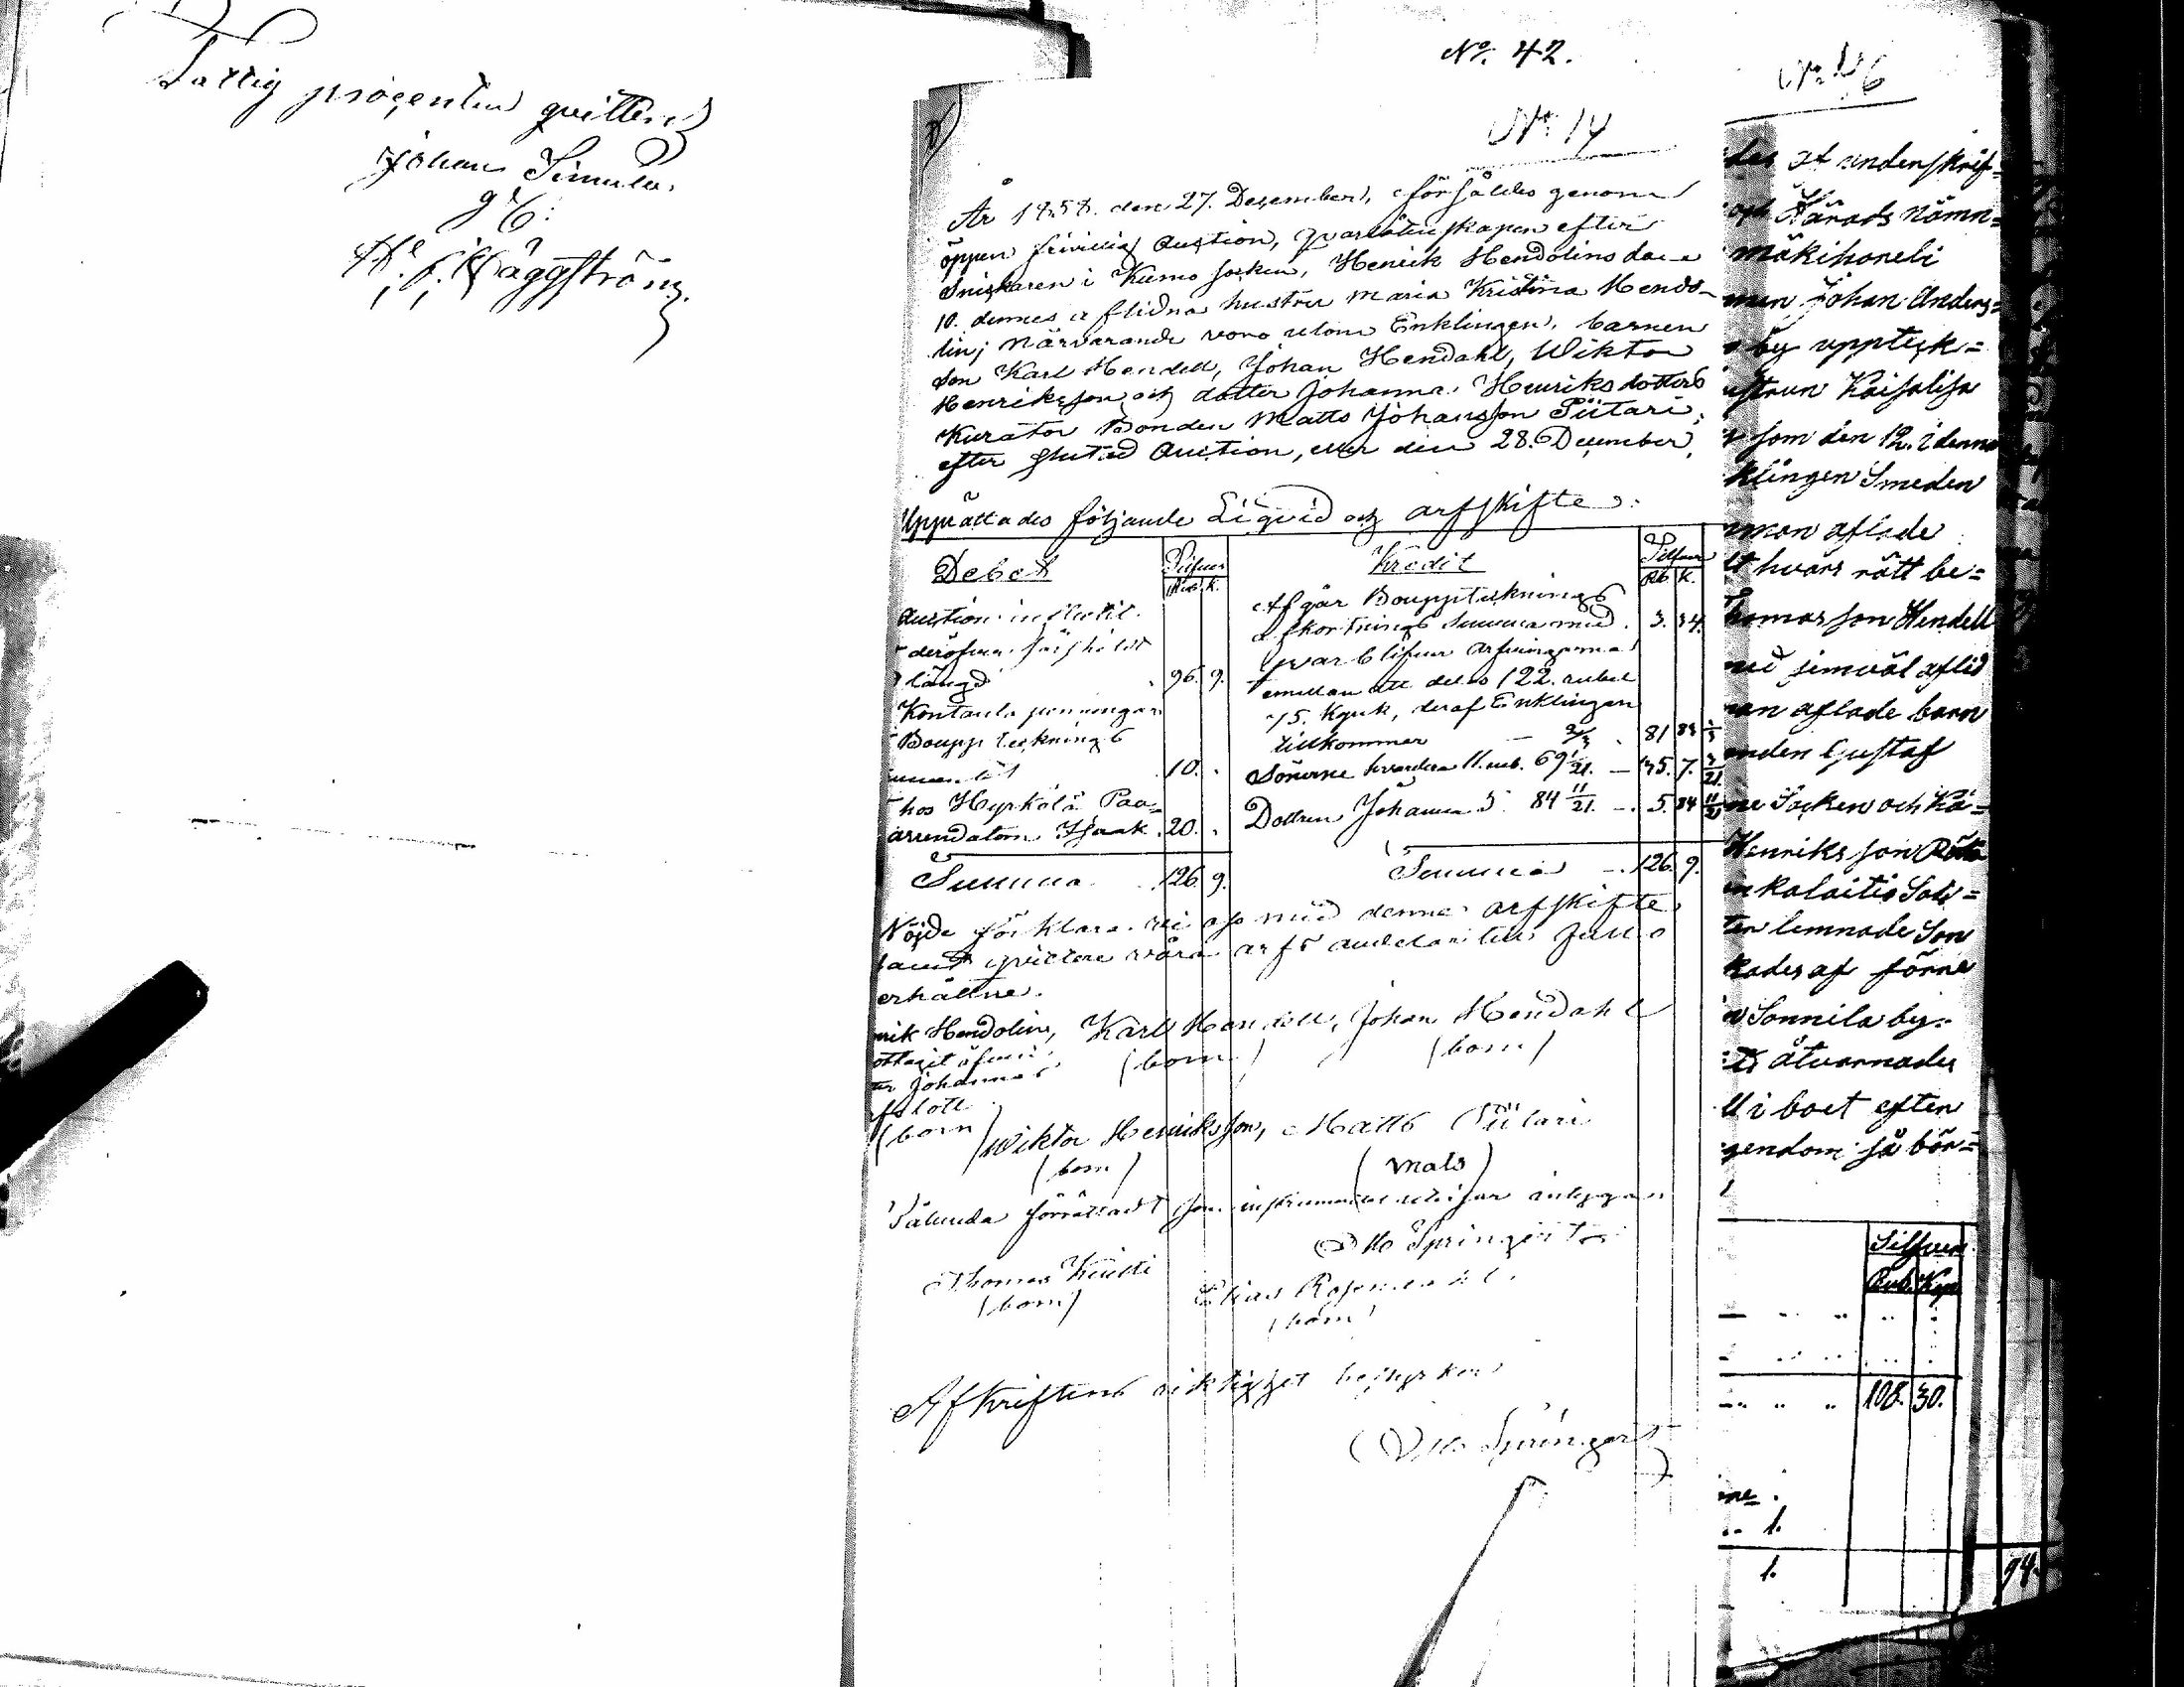 Fattig procenten qvitteras
Johan Simula.
gm:
H. J. Häggström.
No. 42.
No 14
År 1858. den 27. Desember, försåldes genom
öppen frivillig Auction, qvarlåtenskapen efter
Snickaren i Kumo Socken, Henrik Hendolins den
10. dennes aflidna hustru Maria Kristina Hendo-
lin; Närvarande voro utom Enklingen, barnen
Son Karl Hendell, Johan Hendahl, Wiktor
Henriksson och dotter Johanna Henriksdotters
Kurator Bonden Matts Johansson Piitari;
efter slutad Auction, eller den 28. December,
Upprättades följande Liqvid och arfskifte:
Debet
Silfver
Rub. K.
Kredit
Silfver
Rb K.
Auction
deröfver
längd 96. 9.
Kontanta penningar
Boupptecknings
10.
hos Hyrkölä Paa=
arrendatorn Isaak 20.
Summa 126. 9.
Afgår Bouppteknings
afkortnings Summa med 3. 34.
qvarblifver arfvingarna
emellan att delas 122. rubel
75. Kopek, deraf Enklingen
tillkommer - 2/3 81 83 1/3
Sönerne hvardera 11. rub. 69 1/21. - 35. 7. 3/21
Dottren Johanna 5. 84 11/21. - 5. 84 11/21
Summa - 126. 9.
Nöjde förklara vi oss med denne arfskifte
samt qvittera våra arfs andelar till fullo
erhållne.
nrik Hendolin, Karl Hendell, Johan Hendahl
(bom) (bom)
ottagit äfven
ter Johannas
fslott
(bom) Wiktor Henriksson, Matts Piitari
(bom) (mats)
Sålunda förrättadt som instrumentet utvisar intygar
Otto Springert
Thomas Knihti
(bom)
Elias Rosendahl.
(bom)
Afskriftens riktighet bestyrker
Otto Springert
No 46
des af underskrif=
och Härads Nämn=
mäkihoneli
man Johan Anders=
by upptek=
ustrun Kaisalisa
som den 12. i denna
klingen Smeden
aflade
tt hvars rätt be=
homasson Hendell
med jemväl aflid
aflade barn
onden Gustaf
Socken och Kä=
Henriksson
Kalaitis Solv=
ter lemnade Son
kades af förne
Sonnila by.
åtvarnades
ll i boet efter
gendom så bör=
Silfver
Rub. Kop
108. 30.
1.
1.
94.